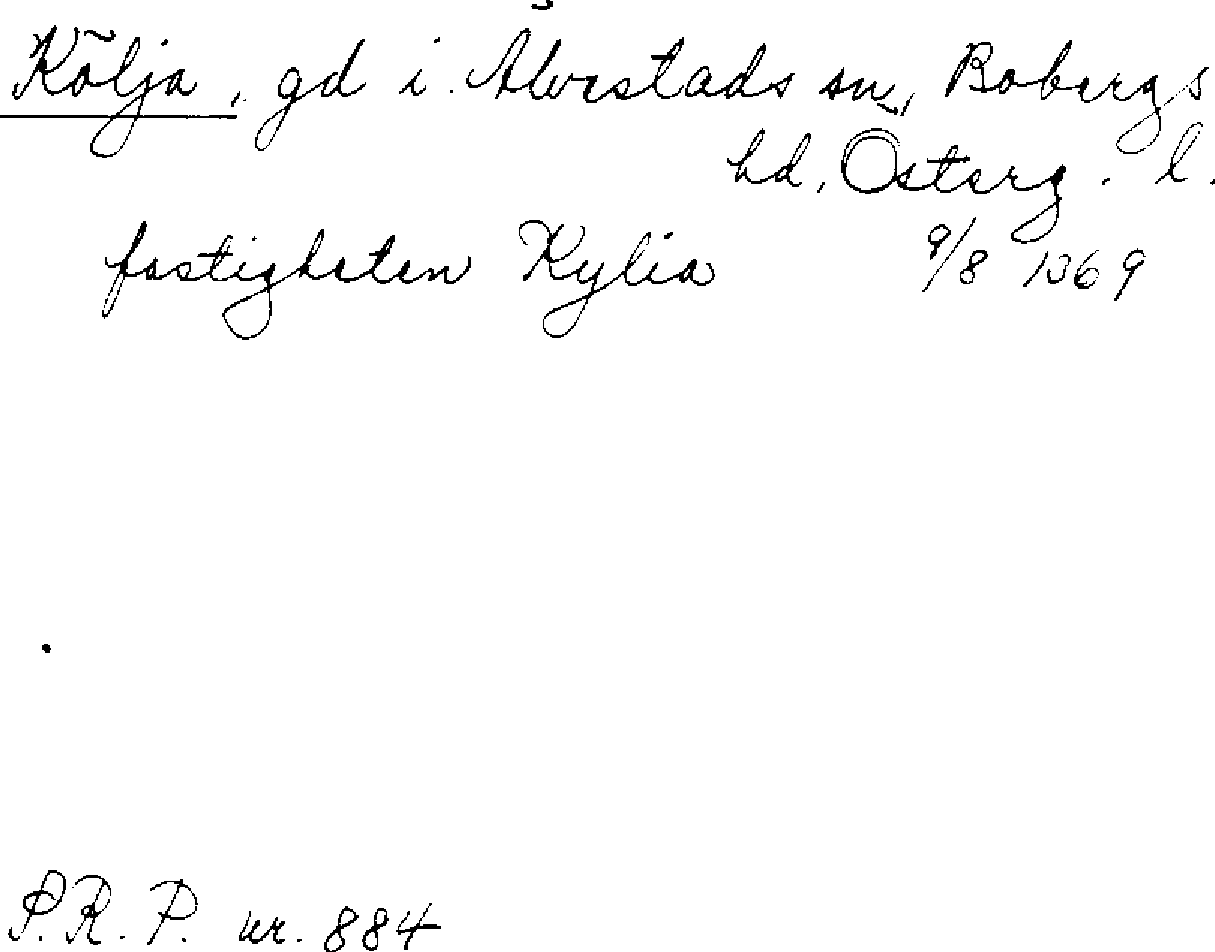 Kölja, gd i Älvestads sn, Bobergs
hd, Österg. l.
fastigheten Kylia 9/8 1369
S.R.P. nr. 884